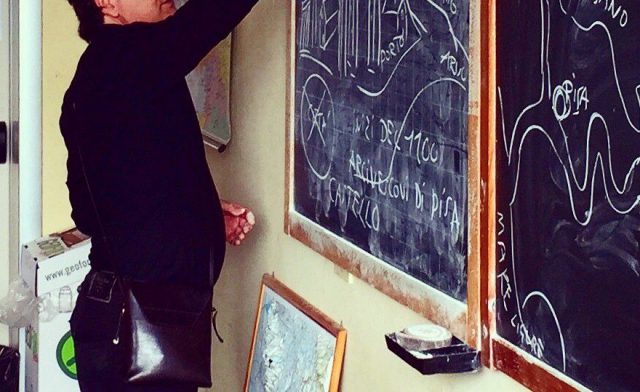 PORTO
ARNO
INIZI DEL 1100
ARCIVESCOVI DI PISA
CASTELLO
PISA
MARE LIGURE
www.geofoo